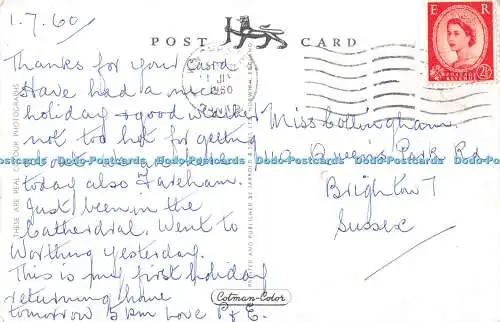 1.7.60
POST CARD
E R
POSTAGE REVENUE
2½
Thanks for your card
Have had a nice
holiday & good weather
not too hot for getting
today also Fareham.
Just been in the
Cathedral. Went to
Worthing yesterday.
This is my first holiday
returning home
tomorrow 5pm Love P & E.
Miss Collingham
Queen's Park Rd
Brighton 7
Sussex
THESE ARE REAL COLOUR PHOTOGRAPHS
PRINTED AND PUBLISHED BY JARROLD & SONS LTD
Cotman-Color
Dodo-Postcards Dodo-Postcards Dodo-Postcards Dodo-Postcards Dodo-Postcards Dodo-Postcards